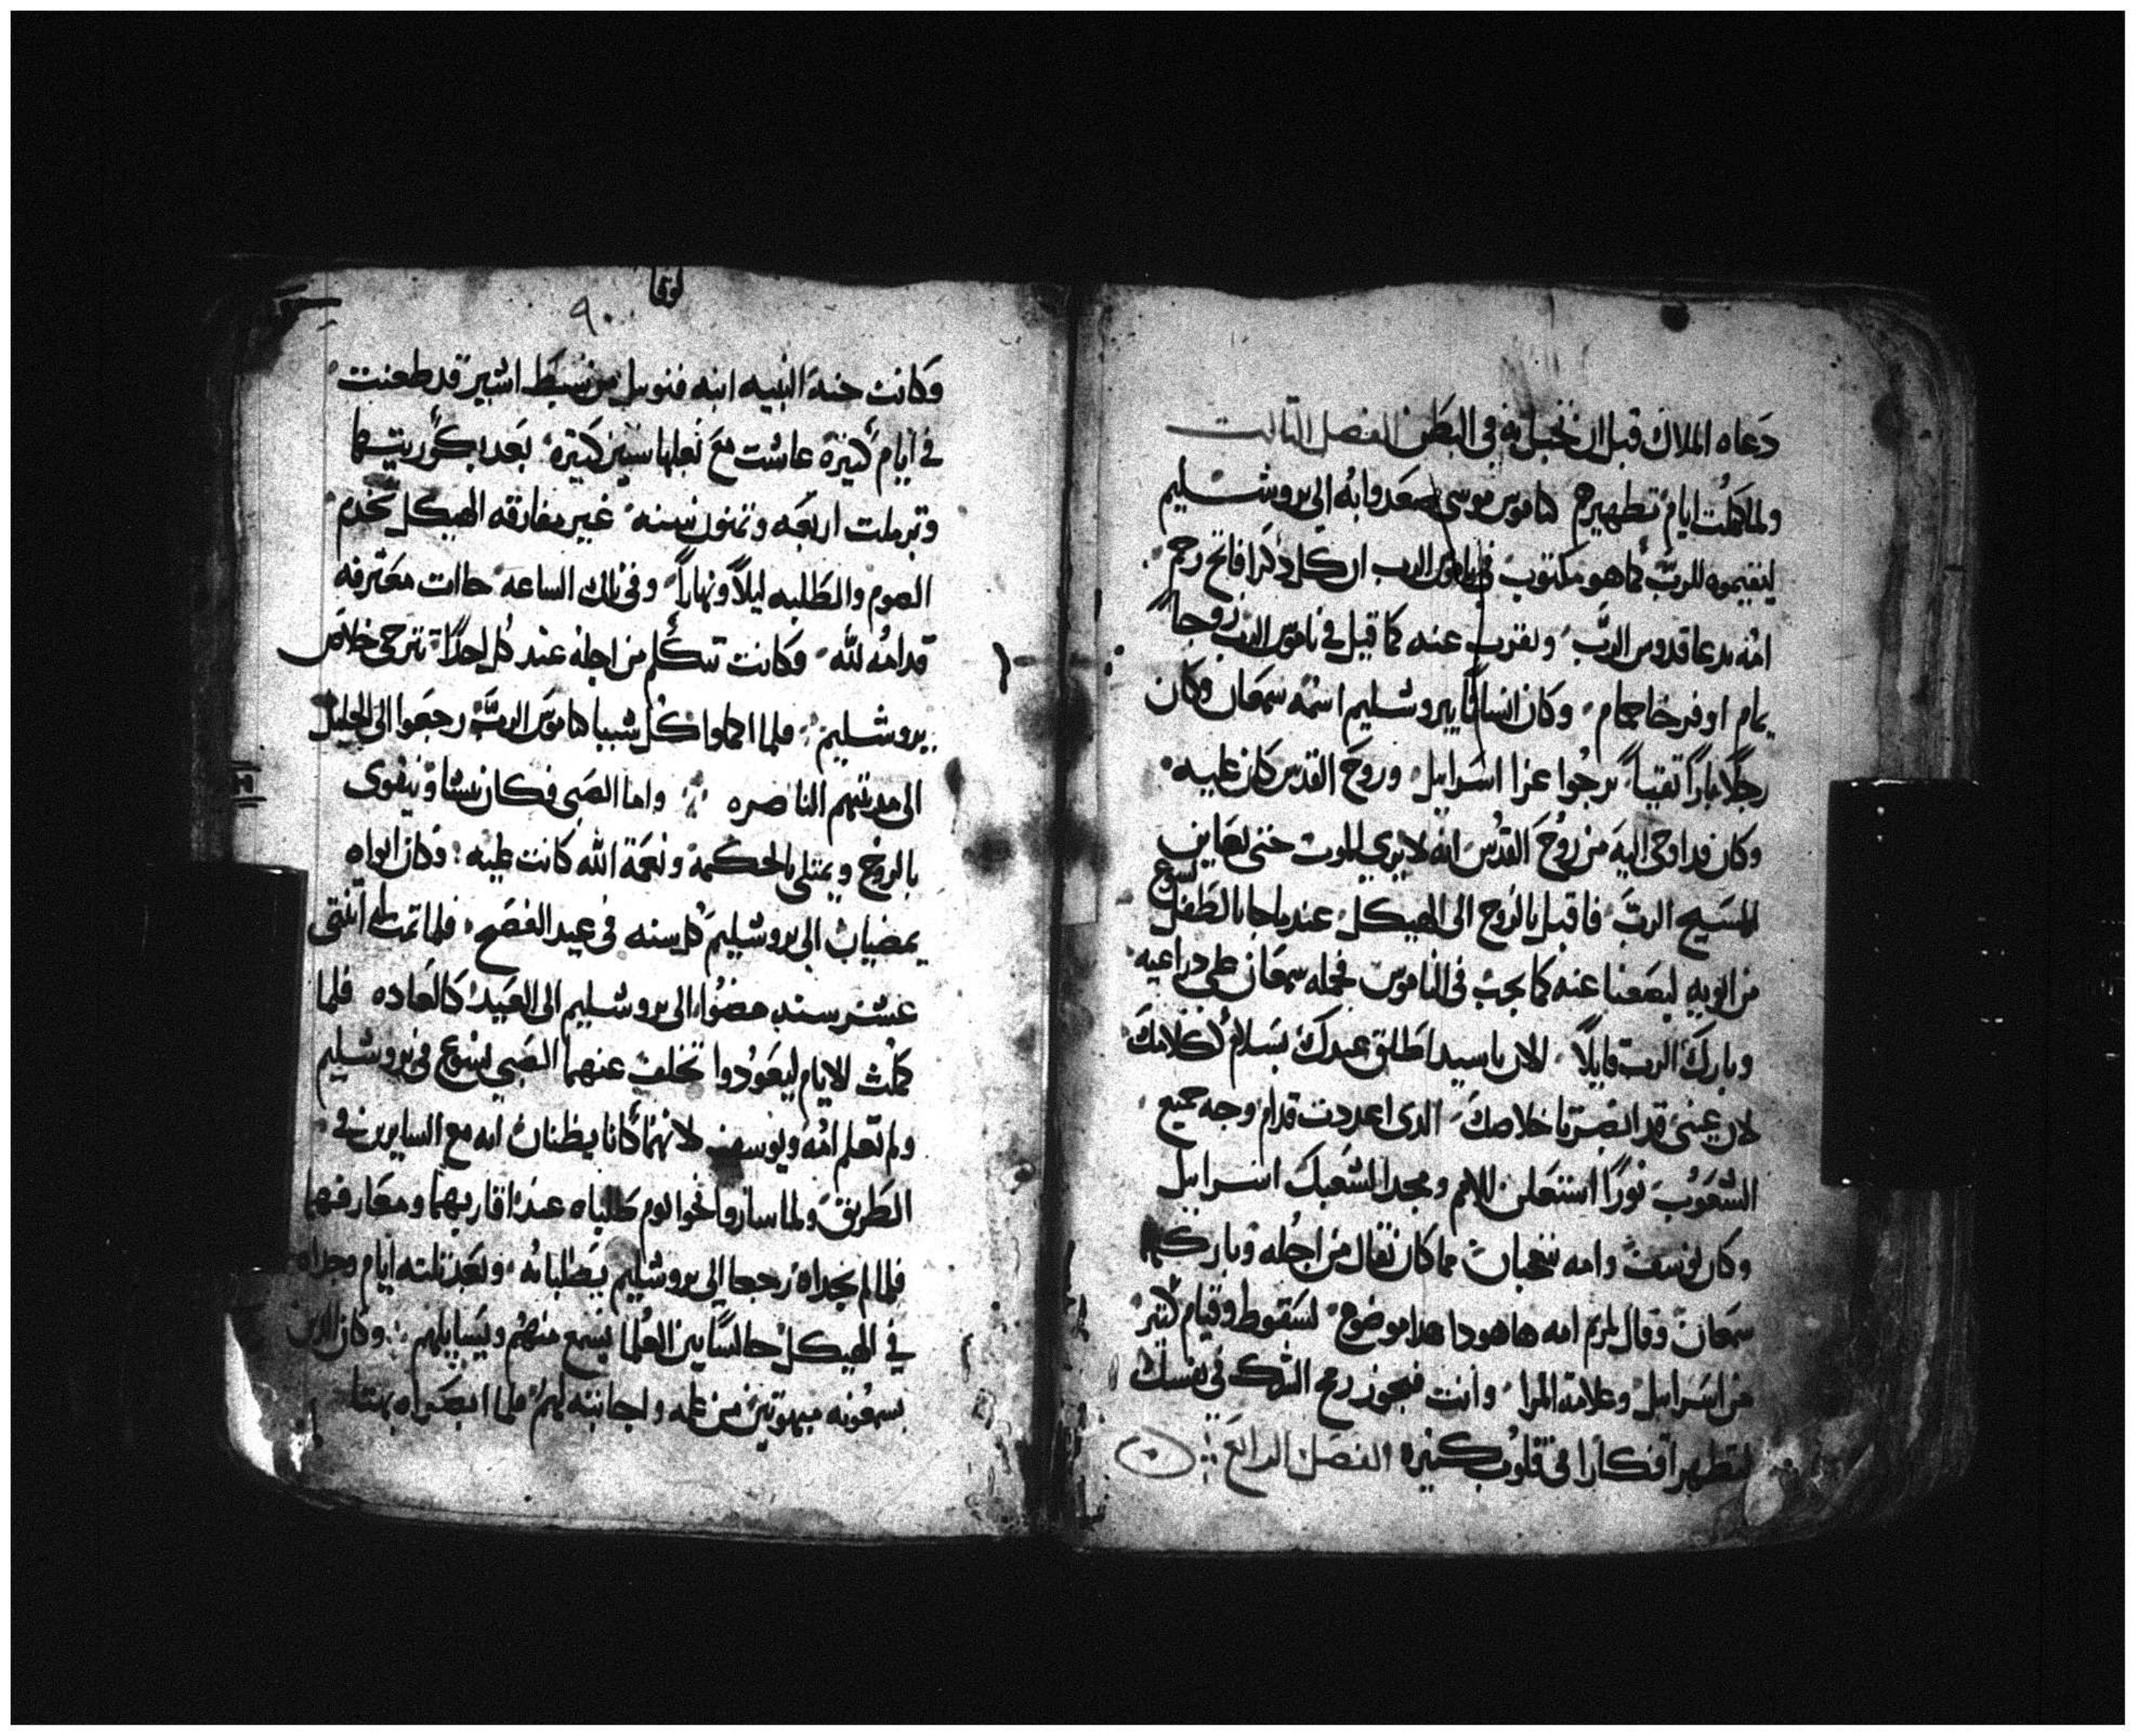 دعاه الملاك قبل ان تحبل به في البطن الفصل الثالت
ولما كملت ايام تطهيرهم كناموس موسى صعدوا به الي يروشليم
ليقيموه للرب كما هو مكتوب في ناموس الرب ان كل دكرا فاتح رحم
امه يدعا قدوس الرب ولقرب عنه كما قيل في ناموس الرب زوجا
يمام او فرخا حمام وكان انسانا بيروشليم اسمه سمعان وكان
رجلا بارا تقيا يرجوا عزا اسراييل وروح القدس كان عليه
وكان قد اوحى اليه من روح القدس انه لا يري الموت حتى يعاين
المسيح الرب فاقبل بالروح الى الهيكل عند ما جا بالطفل يسوع
من ابويه ليصنعا عنه كما يجب في الناموس فحمله سمعان على دراعيه
وبارك الرب قايلا الان يا سيد اطلق عبدك بسلام لكلامك
لان عيني قد ابصرتا خلاصك الدى اعددت قدام وجه جميع
الشعوب نورا استعلن للامم ومجدا لشعبك اسراييل
وكان يوسف وامه يتعجبان مما كان يقال من اجله وباركهما
سمعان وقال لمريم امه ها هودا هدا موضوع لسقوط وقيام كتير
من اسراييل وعلامة المرا وانت فيجوز رمح الشك في نفسك
لتظهر افكارا في قلوب كثيرة الفصل الرابع
لوقا
٩٠
وكانت حنه النبيه ابنه فنوييل من سبط اشير قد طعنت
في ايام كثيرة عاشت مع بعلها سنين كثيرة بعد بكوريتها
وترملت اربعه وتمنون سنه غير مفارقه الهيكل تخدم
الصوم والطلبه ليلا ونهارا وفي تلك الساعه جاات معترفه
قدامه لله وكانت تتكلم من اجله عند كل احدا يترجى خلاص
يروشليم فلما اكملوا كل شييا كناموس الرب رجعوا الى الجليل
الى مدينتهم الناصره واما الصبى فكان ينشا ويتقوى
بالروح ويمتلي بالحكمة ونعمة الله كانت عليه وكان ابواه
يمضيان الى يروشليم كل سنه في عيد الفصح فلما تمت له اتنتي
عشر سنه مضوا الى يروشليم الى العيد كالعاده فلما
كملت الايام ليعودوا تخلف عنهما الصبي يسوع في يروشليم
ولم تعلم امه ويوسف لانهما كانا يظنان انه مع السايرين في
الطريق ولما ساروا نحوا يوم طلباه عند اقاربهما ومعارفهما
فلما لم يجداه رجعا الى يروشليم يطلبانه وبعد تلته ايام وجداه
في الهيكل جالسا بين العلما يسمع منهم ويسايلهم وكان الدين
يسمعونه مبهوتين من علمه واجابته لهم فلما ابصراه بهتا